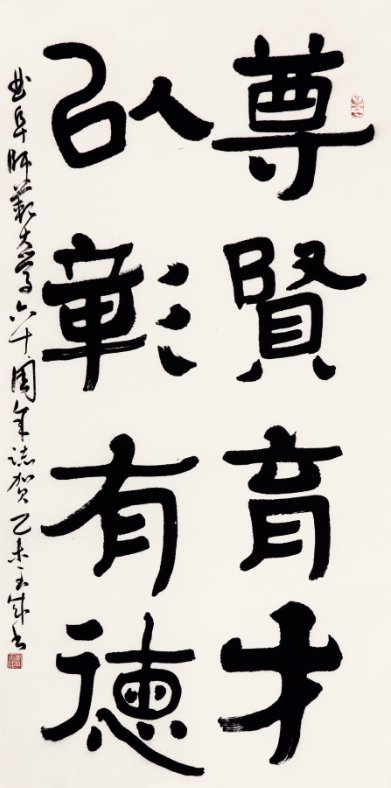 尊賢育才
以彰有德
曲阜師範大學六十周年誌賀 乙未